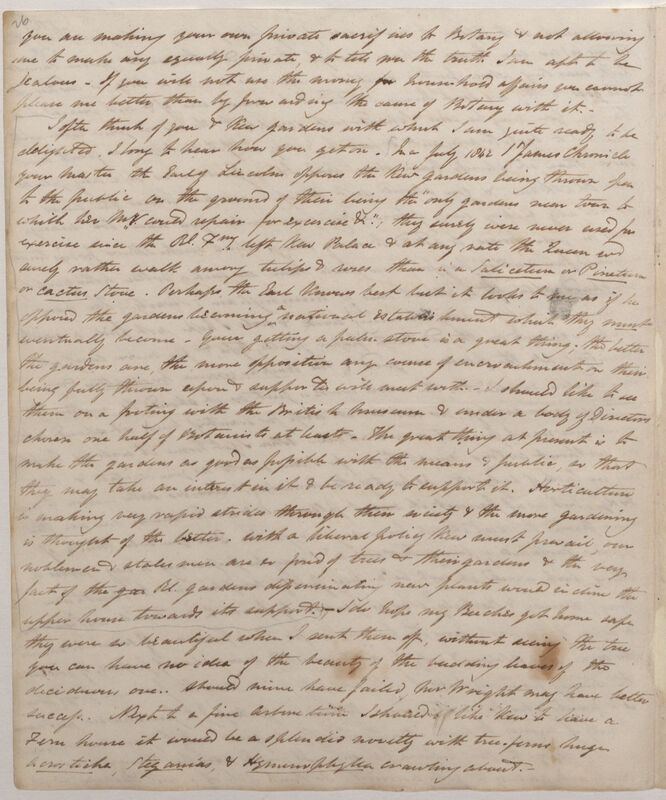 20
you are making your own private sacrifices to Botany & not allowing
me to make any equally private, & to tell you the truth I am apt to be
Jealous – If you will not use the money in household affairs you cannot
please me better than by forwarding the cause of Botany with it. –
I often think of you & Kew gardens with which I am quite ready to be
delighted. I long to hear how you get on. In a July 1842 St James Chronicle
your Master the Earl of Lincoln opposes the Kew gardens being thrown open
to the public on the ground of their being the "only gardens near town to
which her My. could repair for exercise &c"; they surely were never used for
exercise since the Rl. Fmy. left Kew Palace & at any rate the Queen wd
surely rather walk among tulips & roses than in a Salicetum or Pinetum
or Cactus Stove. Perhaps the Earl knows best but it looks to me as if he
opposed the gardens becoming a national establishment which they must
eventually become – Your getting a palm stove is a great thing; the better
the gardens are, the more opposition any course of encroachment on their
being fully thrown open & supported will meet with. – I should like to see
them on a footing with the British Museum & under a body of Directors
chosen one half of Botanists at least. – The great thing at present is to
make the gardens as good as possible with the means & public, so that
they may take an interest in it & be ready to support it. Horticulture
is making very rapid strides through them society & the more gardening
is thought of the better. With a liberal policy Kew must prevail, our
noblemen & statesmen are so fond of trees & their gardens & the very
fact of the Rl. gardens disseminating new plants would incline the
upper house towards its support. – I do hope my Beeches got home safe
they were so beautiful when I sent them off, without seeing the tree
you can have no idea of the beauty of the budding leaves of the
deciduous one. Should mine have failed, Mr Wright may have better
success. Next to a fine arboretum I should like Kew to have a
Fern house it would be a splendid novelty with tree-ferns huge
Acrosticha, Steganias, & Hymenophyllea crawling about. –